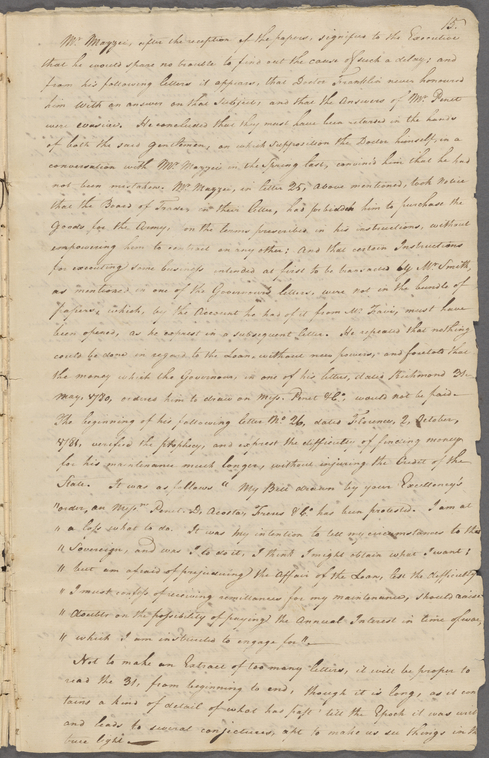 15.
Mr. Mazzei, after the reception of the papers, signified to the Executive
that he would spare no trouble to find out the cause of such a delay; and
from his following letters it appears, that Doctor Franklin never honoured
him with an answer on that Subject; and that the Answers of Mr. Penet
were evasive. He concluded that they must have been retarded in the hands
of both the said gentlemen, on which supposition the Doctor himself, in a
conversation with Mr. Mazzei in the Spring last, convinced him that he had
not been mistaken. Mr. Mazzei, in letter 25, above mentioned, took notice
that the Board of Trade, in their letter, had forbidden him to purchase the
Goods for the Army, on the terms prescribed in his instructions, without
empowering him to contract on any other; And that certain Instructions
for executing some business intended at first to be transacted by Mr. Smith,
as mentioned in one of the Governour's letters, were not in the bundle of
papers; which, by the Account he has of it from Mr. , must have
been opened, as he notes in a subsequent letter. He repeated that nothing
could be done in regard to the Loan, without new powers, and foretold that
the money which the Governour, in one of his letters, dated Richmond 31.
May, 1780, orders him to draw on Messrs. Penet & Co. would not be paid.
The beginning of his following letter No. 26, dated Florence, 2, October,
1781, verified the prophecy, and exprest the difficulty of finding money
for his maintenance much longer, without injuring the Credit of the
State. It was as follows "My Bill drawn by your Excellency's
"order, on Messrs. Penet, D'Acosta, Freres & Co. has been protested. I am at
"a loss what to do. It was my intention to tell my circumstances to this
"Sovereign, and was I to do it, I think I might obtain what I want;
"but am afraid of prejudicing the Affair of the Loan, lest the difficulty
"I must confess of receiving remittances for my maintenance, should raise
"doubts on the possibility of paying the Annual Interest in time of war,
"which I am instructed to engage for".
Not to make an Extract of too many letters, it will be proper to
read the 31, from beginning to end, though it is long, as it con
tains a kind of detail of what has past till the Epoch it was writ
and leads to several conjectures, apt to make us see things in th
true light.